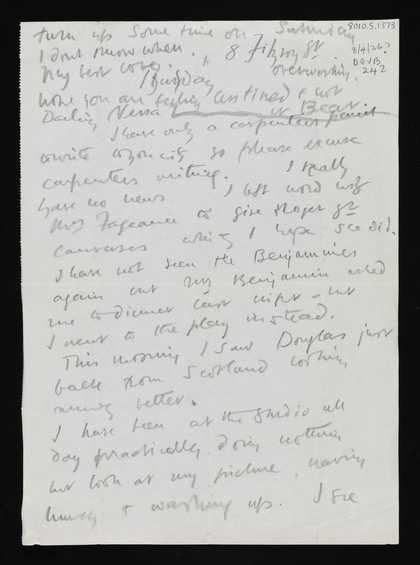 turn up some time on Saturday
I dont know when.
My best love.
8 Fitzroy St.
hope you are feeling less tired & not
overworking.
8010.5.1573
3/4/26?
DGVB
242
Tuesday
Darling Nessa
Bear
I have only a carpenters pencil
to write to you with so please excuse
carpenters writing. I really
have no news I left word with
Mrs to give Roger
canvases which I hope she did.
I have not seen the Benjamins
again but Mrs Benjamin asked
me to dinner last night - but
I went to the play instead.
This morning I saw Douglas just
back from Scotland looking
much better.
I have been at the studio all
day practically doing nothing
but look at my picture, having
lunch & washing up. I